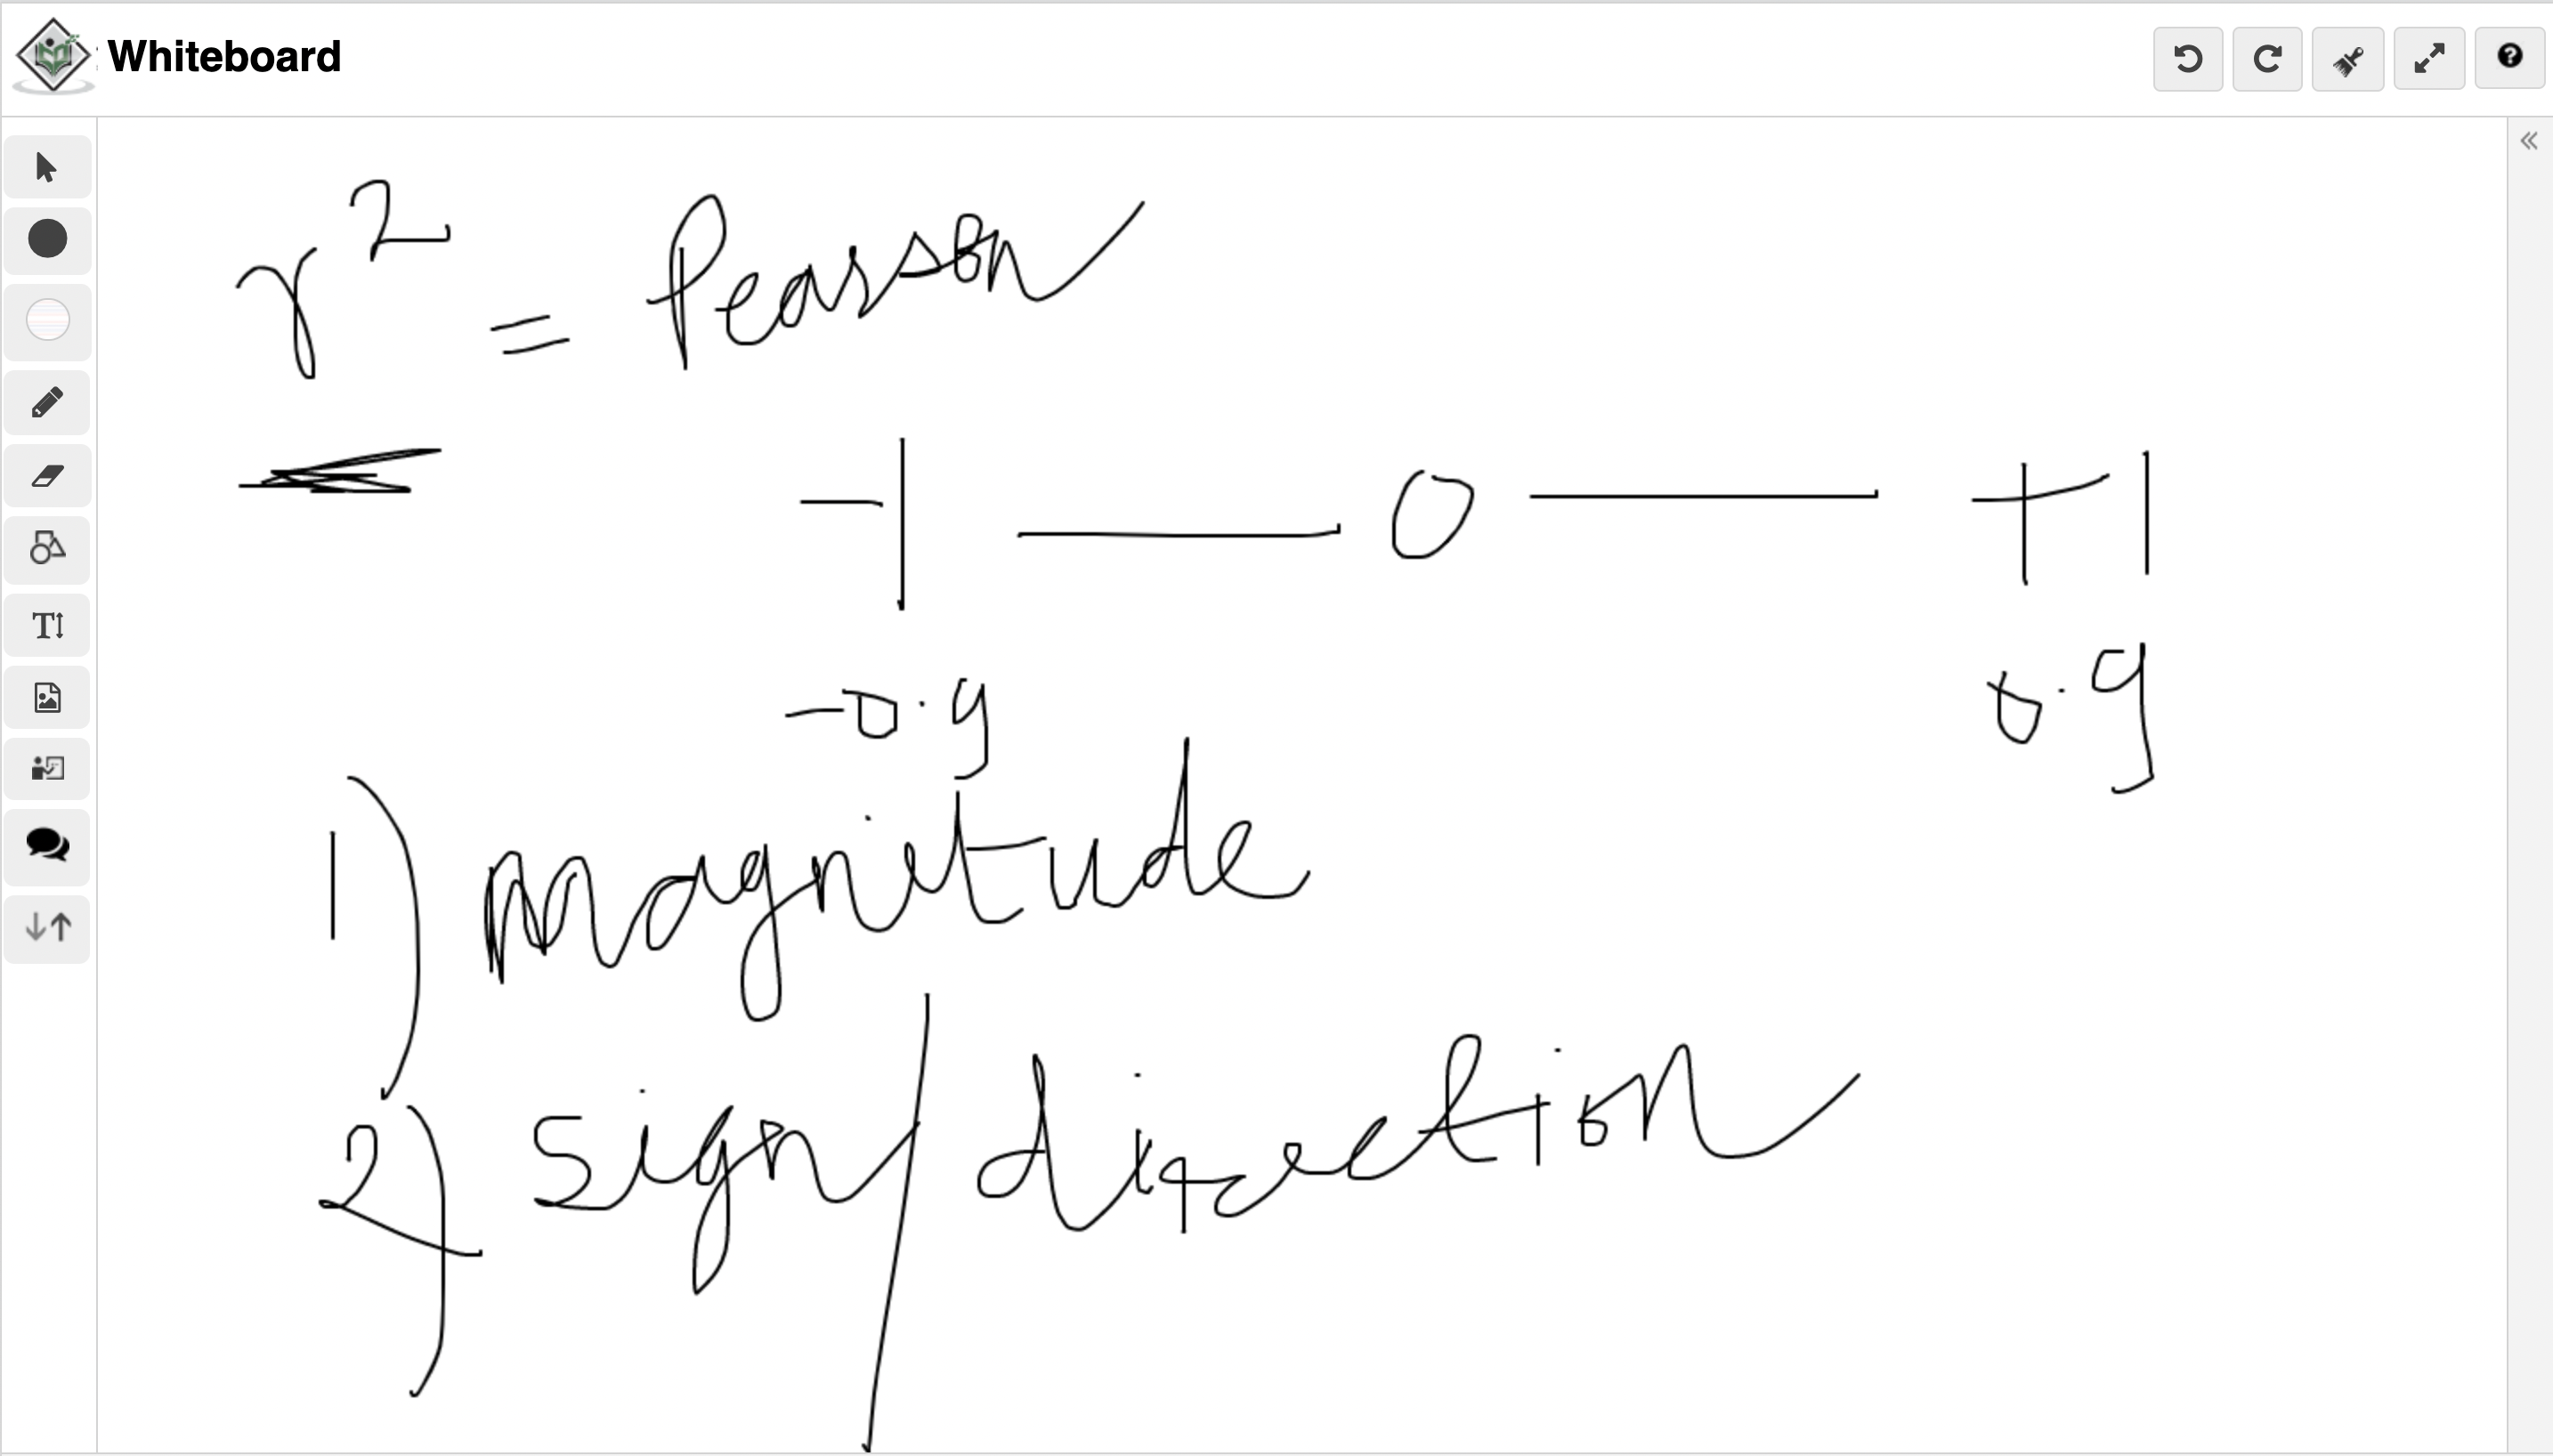 Whiteboard
r² = Pearson
-1 — 0 — +1
-0.9 0.9
1) magnitude
2) sign/direction